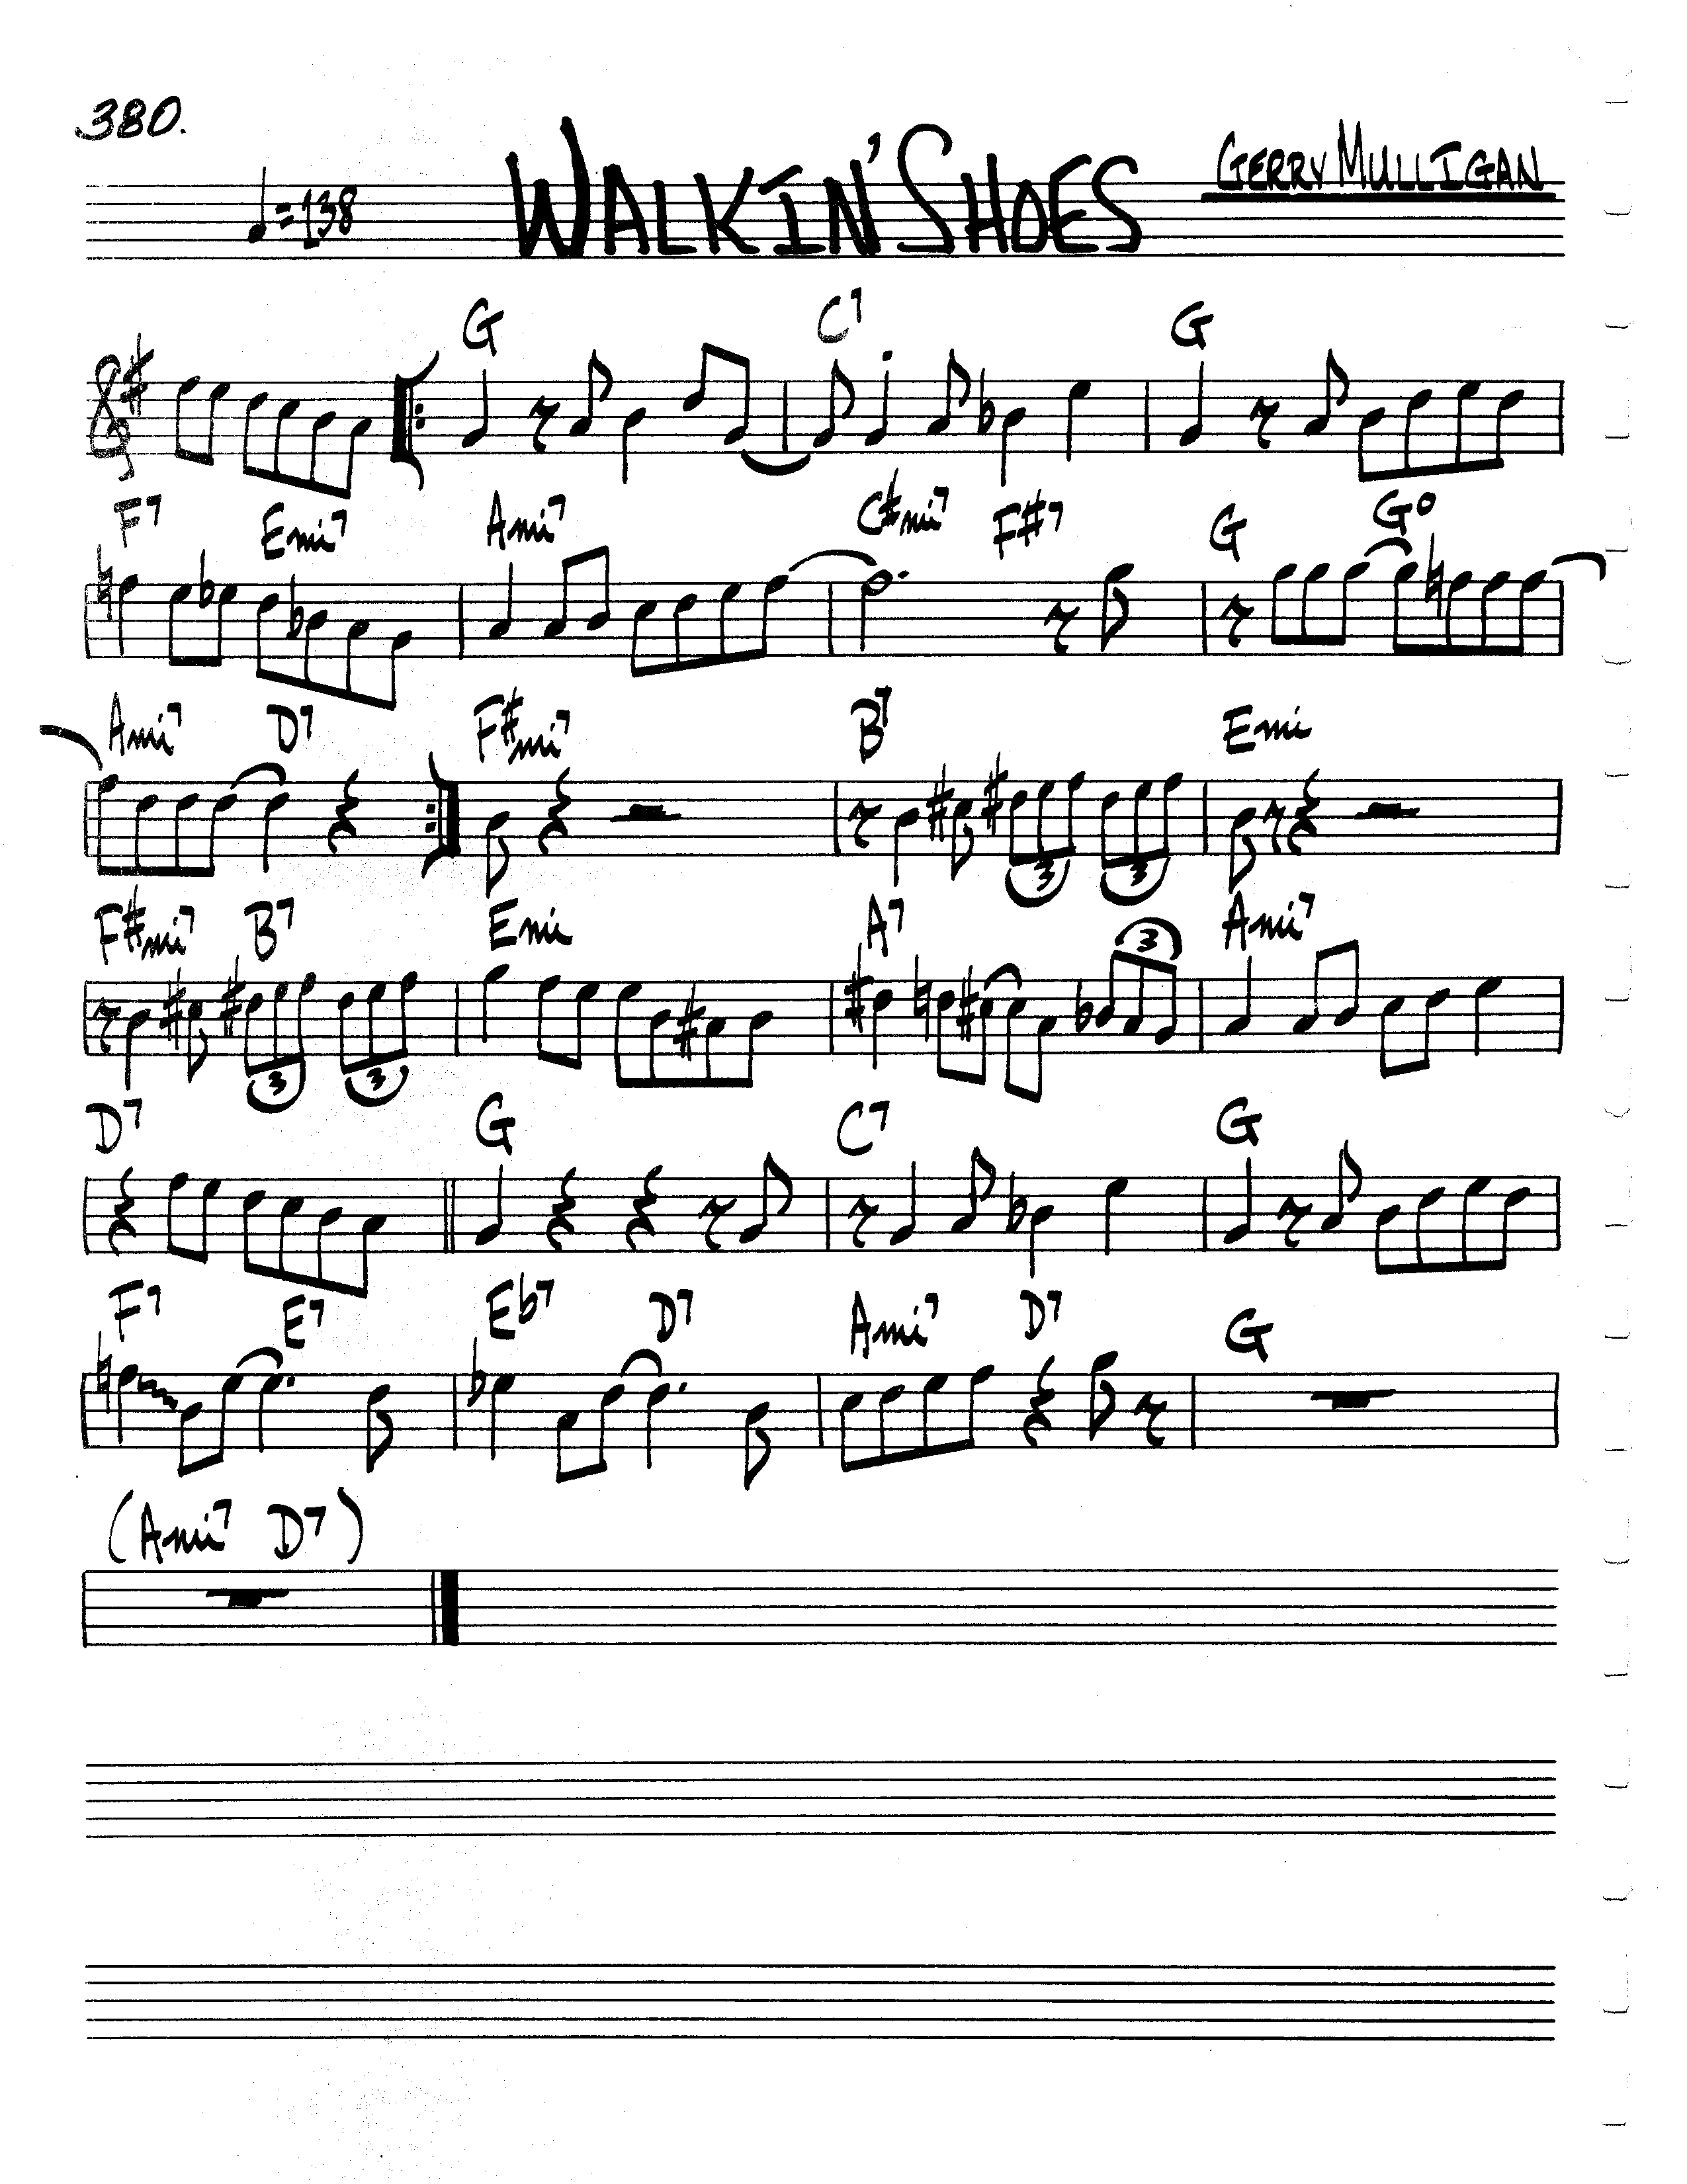 380.
♩=138 WALKIN' SHOES GERRY MULLIGAN
G C7 G
F7 Emi7 Ami7 C#mi7 F#7 G G°
Ami7 D7 F#mi7 B7 Emi
3 3
F#mi7 B7 Emi A7 3 Ami7
3 3
D7 G C7 G
F7 E7 Eb7 D7 Ami7 D7 G
(Ami7 D7)